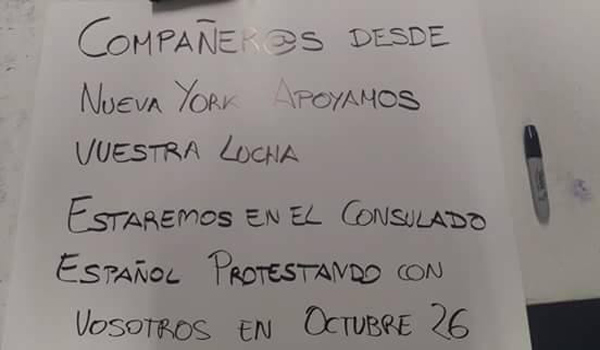 COMPAÑER@S DESDE
NUEVA YORK APOYAMOS
VUESTRA LUCHA
ESTAREMOS EN EL CONSULADO
ESPAÑOL PROTESTANDO CON
VOSOTROS EN OCTUBRE 26